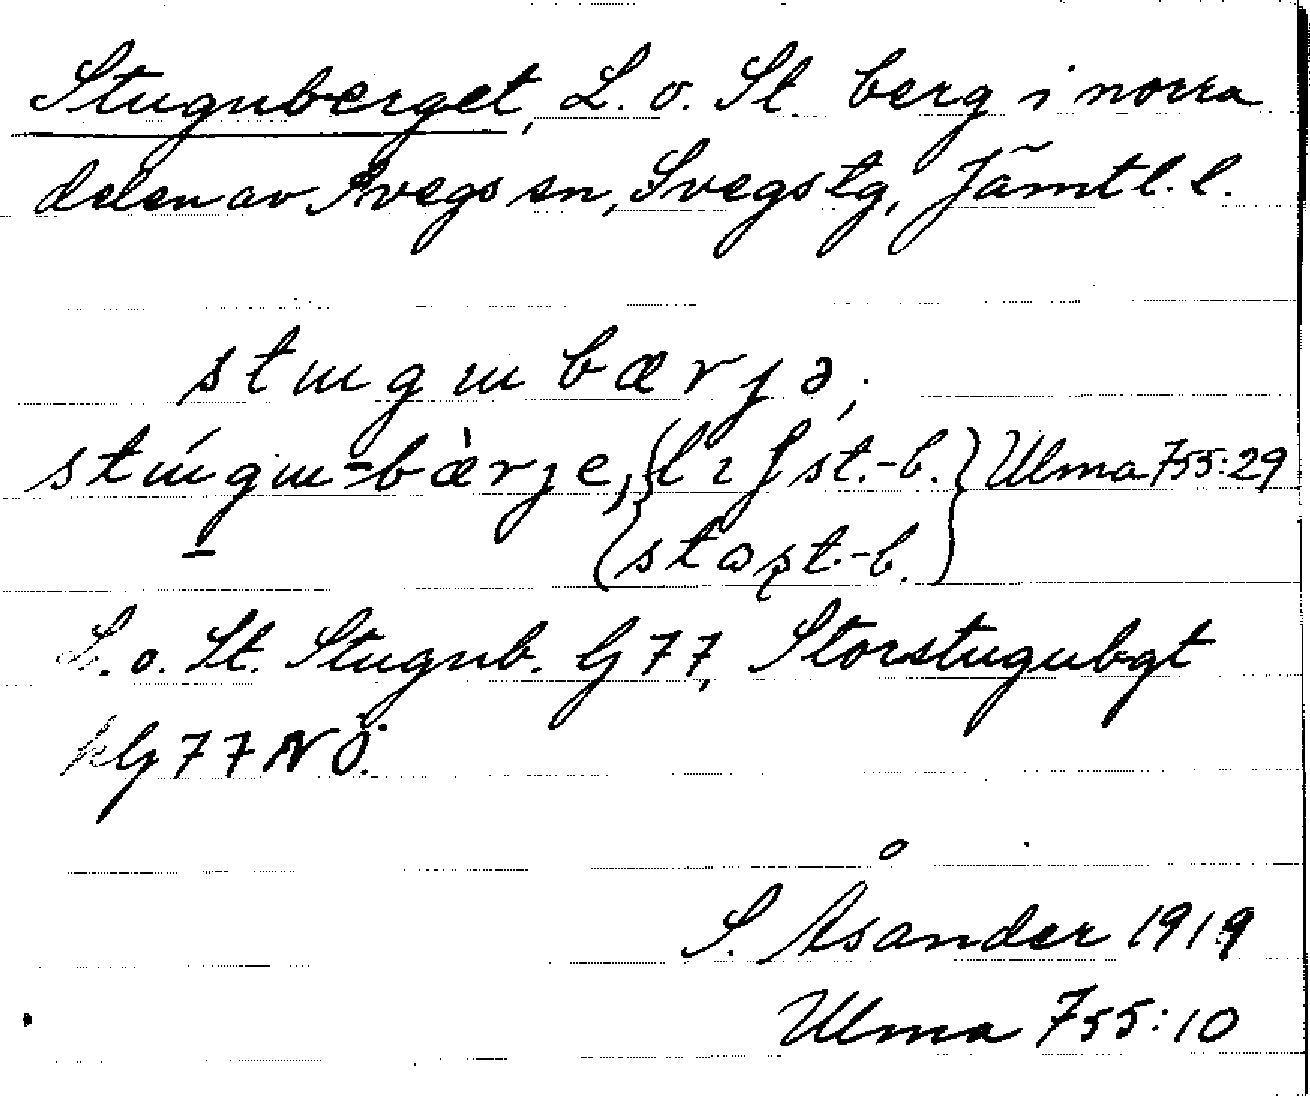 Stuguberget, L. o. St. berg i norra
delen av Svegs sn, Svegs tg, Jämtl. l.
stɯgɯbærjə,
stɯ́gɯ-bæ̀rje, {lɩʃst.-b.} Ulma 755:29
{stoʂt.-b.}
L. o. St. Stugub. G 77, Storstugubgt
kG 77 NÖ.
S. Åsander 1919
Ulma 755:10